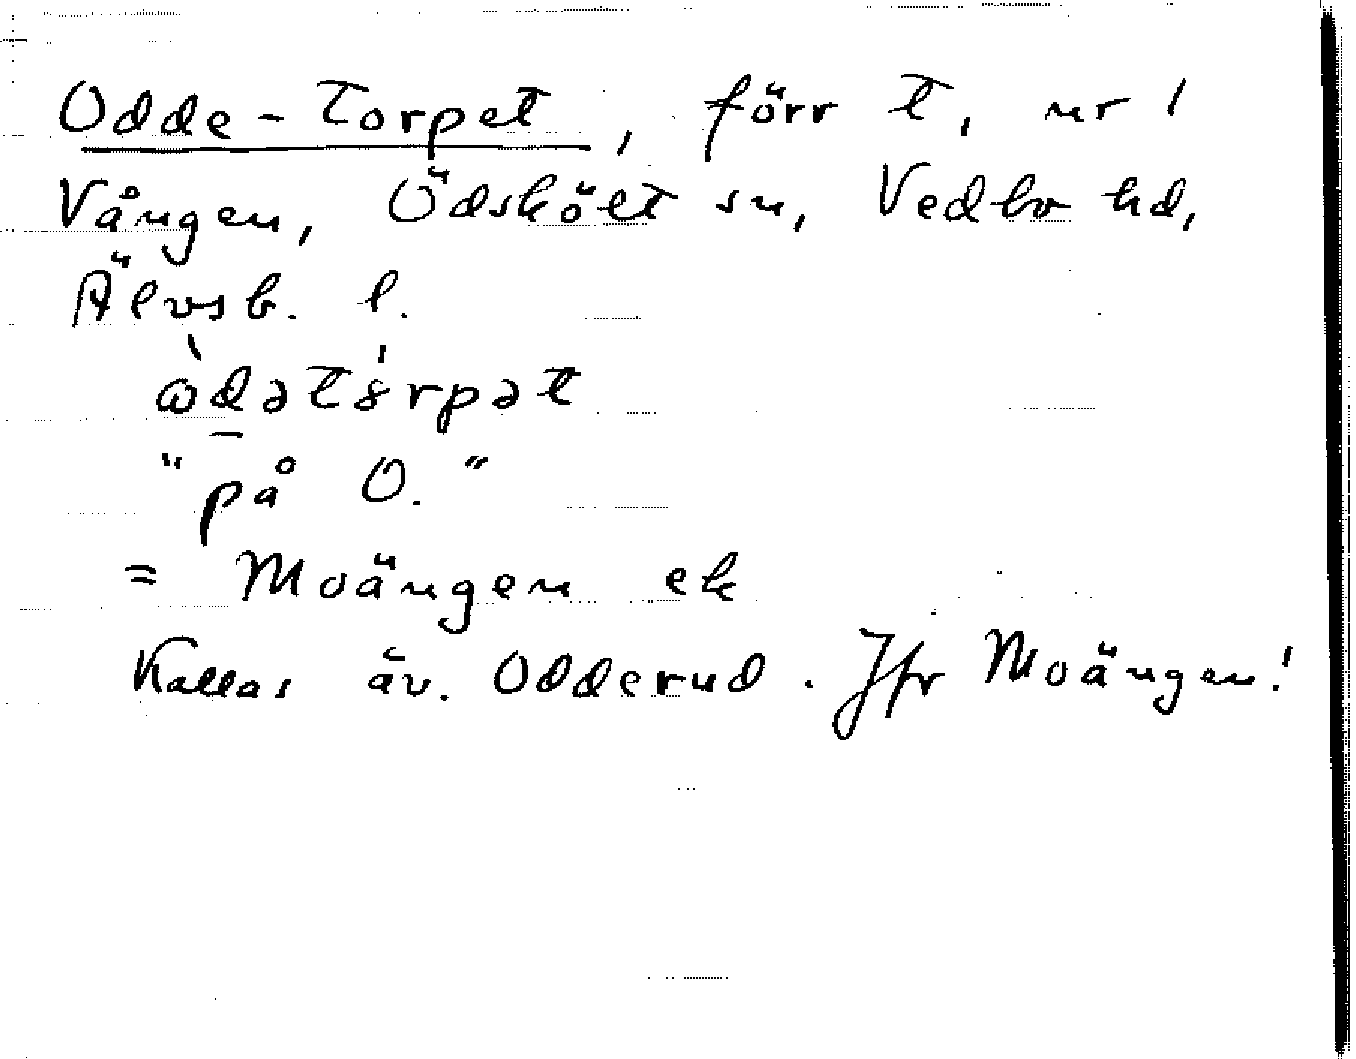 Odde-Torpet, förr t, nr 1
Vången, Ödskölt sn, Vedbo hd,
Älvsb. l.
"på O."
= Moängen ek
Kallas äv. Odderud. Jfr Moängen!